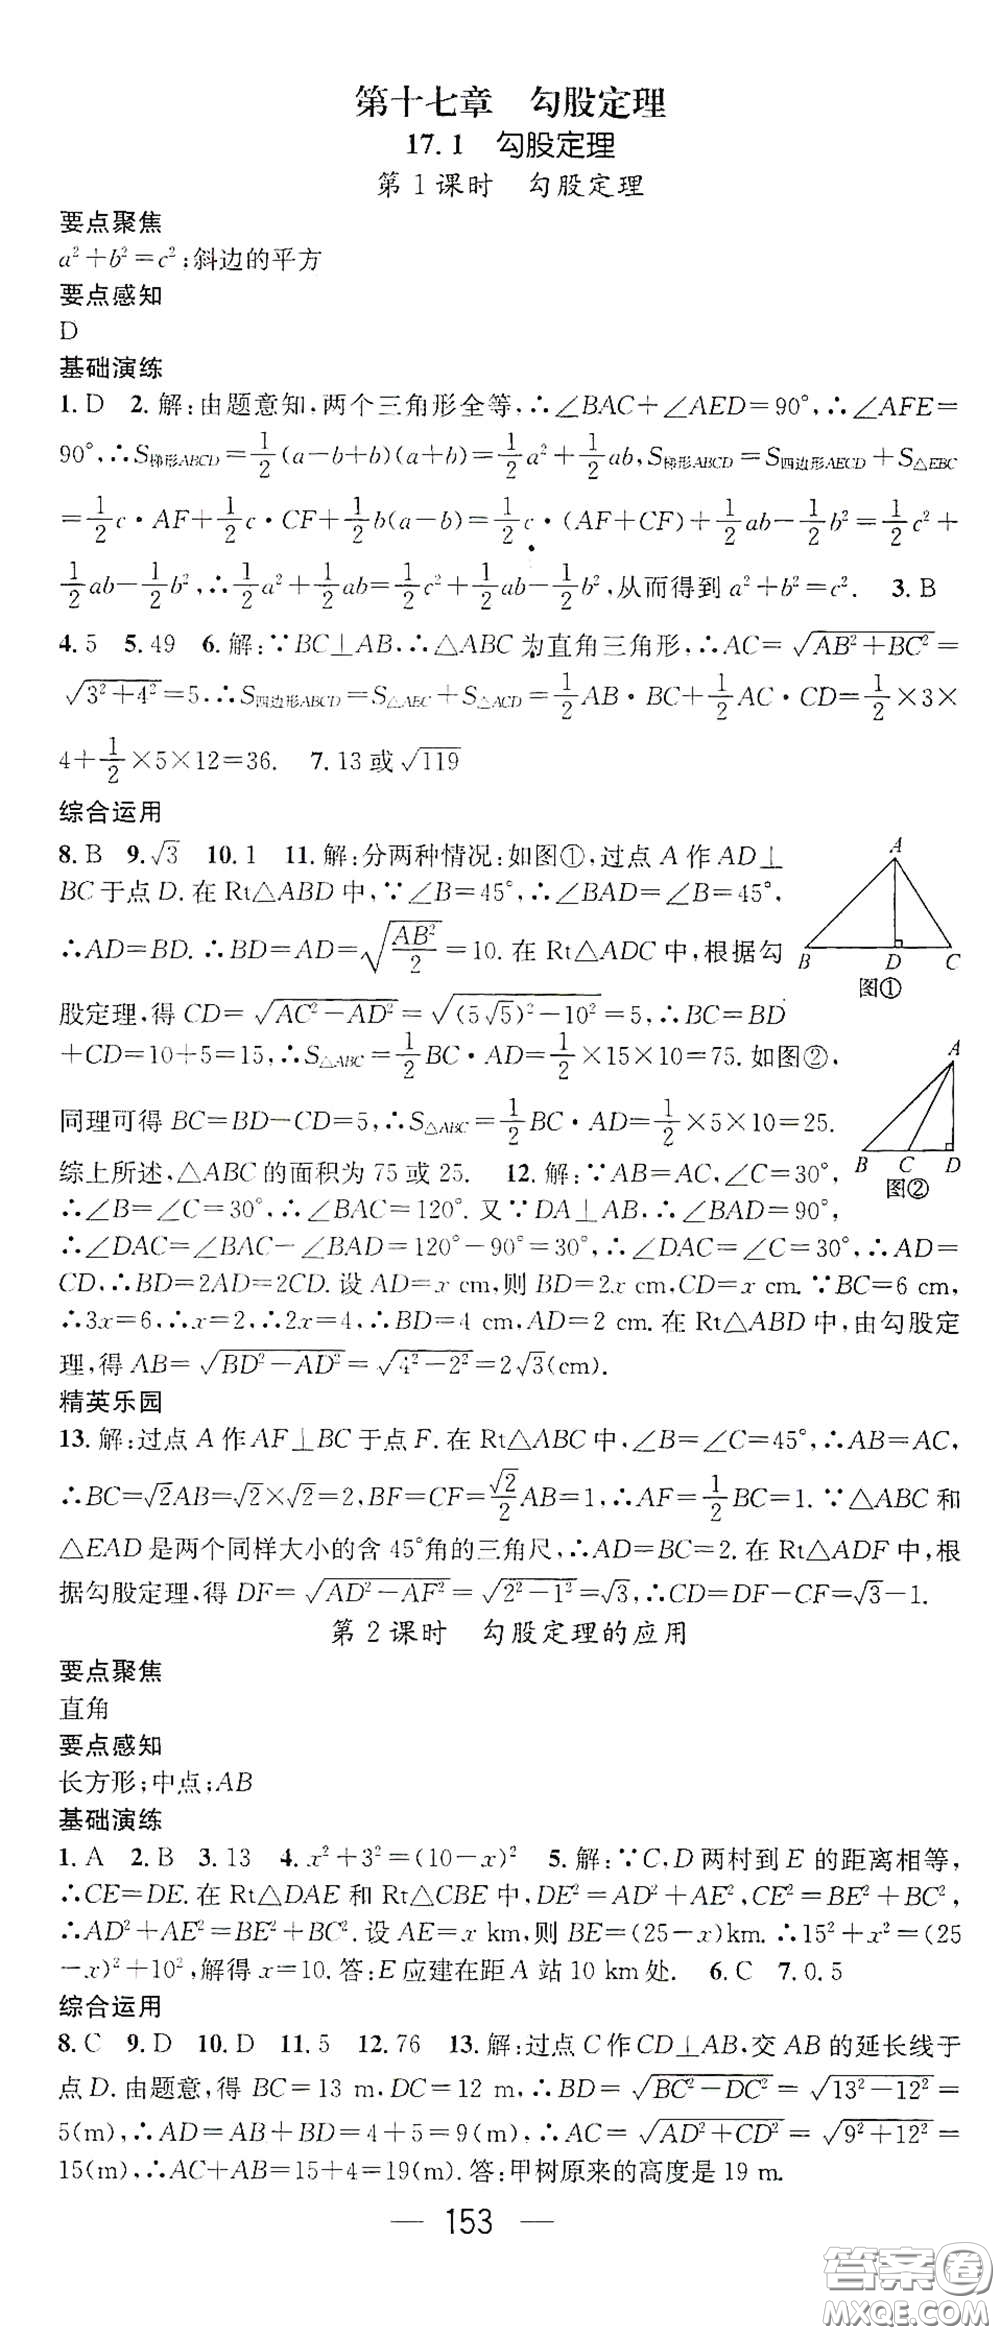 第十七章 勾股定理
17.1 勾股定理
第1课时 勾股定理
要点聚焦
a²+b²=c²;斜边的平方
要点感知
D
基础演练
1.D 2.解:由题意知,两个三角形全等,∴∠BAC+∠AED=90°,∴∠AFE=
90°,∴S梯形ABCD=1/2(a-b+b)(a+b)=1/2a²+1/2ab,S梯形ABCD=S四边形AECD+S△EBC
=1/2c·AF+1/2c·CF+1/2b(a-b)=1/2c·(AF+CF)+1/2ab-1/2b²=1/2c²+
1/2ab-1/2b²,∴1/2a²+1/2ab=1/2c²+1/2ab-1/2b²,从而得到a²+b²=c². 3.B
4.5 5.49 6.解:∵BC⊥AB,∴△ABC为直角三角形,∴AC=√(AB²+BC²)=
√(3²+4²)=5.∴S四边形ABCD=S△ABC+S△ACD=1/2AB·BC+1/2AC·CD=1/2×3×
4+1/2×5×12=36. 7.13或√119
综合运用
8.B 9.√3 10.1 11.解:分两种情况:如图①,过点A作AD⊥
BC于点D.在Rt△ABD中,∵∠B=45°,∴∠BAD=∠B=45°,
∴AD=BD.∴BD=AD=√(AB²/2)=10.在Rt△ADC中,根据勾
股定理,得CD=√(AC²-AD²)=√((5√5)²-10²)=5,∴BC=BD
+CD=10+5=15,∴S△ABC=1/2BC·AD=1/2×15×10=75.如图②,
同理可得BC=BD-CD=5,∴S△ABC=1/2BC·AD=1/2×5×10=25.
综上所述,△ABC的面积为75或25. 12.解:∵AB=AC,∠C=30°,
∴∠B=∠C=30°,∴∠BAC=120°.又∵DA⊥AB,∴∠BAD=90°,
∴∠DAC=∠BAC-∠BAD=120°-90°=30°,∴∠DAC=∠C=30°,∴AD=
CD,∴BD=2AD=2CD.设AD=x cm,则BD=2x cm,CD=x cm.∵BC=6 cm,
∴3x=6,∴x=2,∴2x=4,∴BD=4 cm,AD=2 cm.在Rt△ABD中,由勾股定
理,得AB=√(BD²-AD²)=√(4²-2²)=2√3(cm).
A
B D C
图①
A
B C D
图②
精英乐园
13.解:过点A作AF⊥BC于点F.在Rt△ABC中,∠B=∠C=45°,∴AB=AC,
∴BC=√2AB=√2×√2=2,BF=CF=√2/2AB=1,∴AF=1/2BC=1.∵△ABC和
△EAD是两个同样大小的含45°角的三角尺,∴AD=BC=2.在Rt△ADF中,根
据勾股定理,得DF=√(AD²-AF²)=√(2²-1²)=√3,∴CD=DF-CF=√3-1.
第2课时 勾股定理的应用
要点聚焦
直角
要点感知
长方形;中点;AB
基础演练
1.A 2.B 3.13 4.x²+3²=(10-x)² 5.解:∵C,D两村到E的距离相等,
∴CE=DE.在Rt△DAE和Rt△CBE中,DE²=AD²+AE²,CE²=BE²+BC²,
∴AD²+AE²=BE²+BC².设AE=x km,则BE=(25-x)km.∴15²+x²=(25
-x)²+10²,解得x=10.答:E应建在距A站10 km处. 6.C 7.0.5
综合运用
8.C 9.D 10.D 11.5 12.76 13.解:过点C作CD⊥AB,交AB的延长线于
点D.由题意,得BC=13 m,DC=12 m,∴BD=√(BC²-DC²)=√(13²-12²)=
5(m),∴AD=AB+BD=4+5=9(m),∴AC=√(AD²+CD²)=√(9²+12²)=
15(m),∴AC+AB=15+4=19(m).答:甲树原来的高度是19 m.
— 153 —
答案圈
MXQE.COM